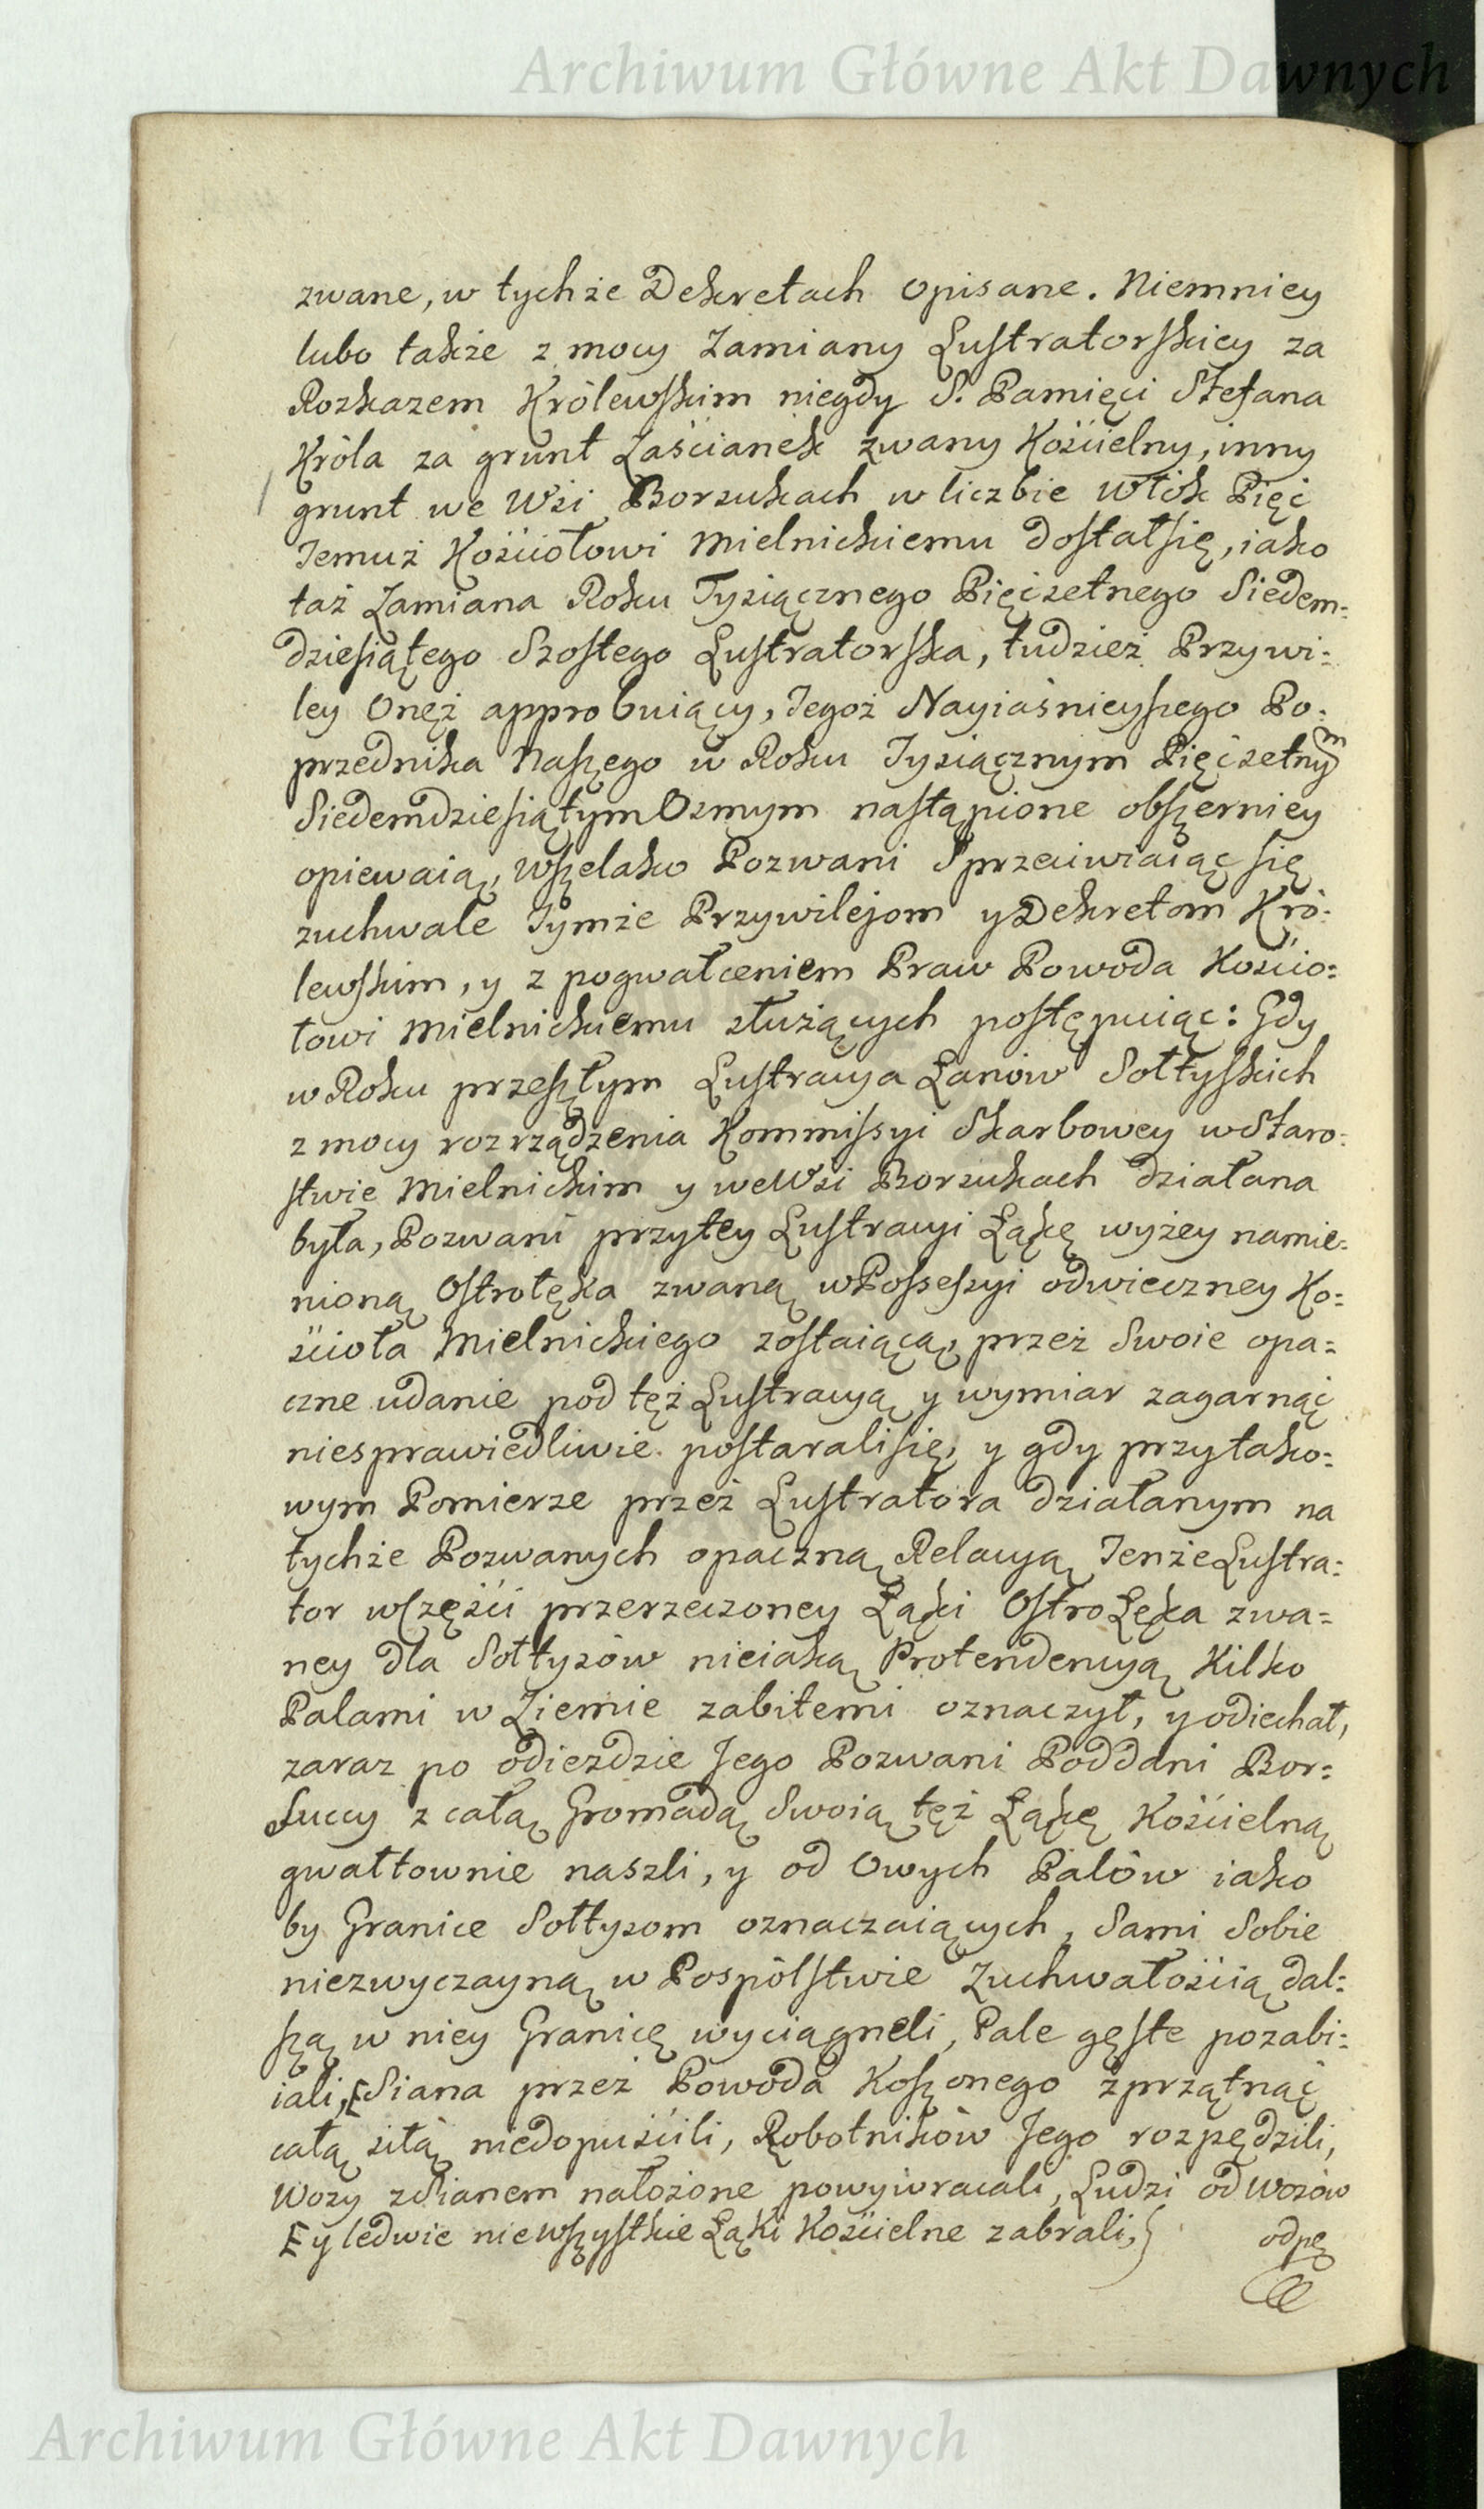 Archiwum Główne Akt Dawnych
zwane, w tychże Dekretach opisane. Niemniey
lubo także z mocy Zamiany Lustratorskiey za
Rozkazem Królewskim niegdy S. Pamięci Stefana
Króla za grunt Zaścianek zwany Kościelny, inny
grunt we Wsi Borsukach w liczbie Włók Pięć
Temuż Kościołowi Mielnickiemu dostał się, iako
taż Zamiana Roku Tysiącznego Pięćsetnego Siedem-
dziesiątego Szostego Lustratorska, tudzież Przywi-
ley Onęż approbuiący, Tegoż Nayiaśnieyszego Po-
przednika Naszego w Roku Tysiącznym Pięćsetnym
Siedemdziesiątym Osmym nastąpione obszerniey
opiewaią, wszelako Pozwani Sprzeciwiaiąc się
zuchwale Tymże Przywilejom y Dekretom Kró-
lewskim, y z pogwałceniem Praw Powoda Kościo-
łowi Mielnickiemu służących postępuiąc: Gdy
w Roku przeszłym Lustracya Łanów Sołtyskich
z mocy rozrządzenia Kommissyi Skarbowey w Staro-
stwie Mielnickim y we Wsi Borsukach działana
była, Pozwani przy tey Lustracyi Łąkę wyżey namie-
nioną Ostrołęka zwaną w Possessyi odwieczney Ko-
ścioła Mielnickiego zostaiącą, przez Swoie opa-
czne udanie pod tęż Lustracyą y wymiar zagarnąć
niesprawiedliwie postarali się, y gdy przy tako-
wym Pomierze przez Lustratora działanym na
tychże Pozwanych opaczną Relacyą Tenże Lustra-
tor w części przerzeczoney Łąki OstroŁęka zwa-
ney dla Sołtysów nieiaką Protendencyą Kilko
Palami w Ziemie zabitemi oznaczył, y odiechał,
zaraz po odiezdzie Jego Pozwani Poddani Bor-
succy z całą Gromadą Swoią tęż Łąkę Kościelną
gwałtownie naszli, y od Owych Palów iako
by Granice Sołtysom oznaczaiących, Sami Sobie
niezwyczayną w Pospólstwie Zuchwałością dal-
szą w niey Granicę wyciągneli, Pale gęste pozabi-
iali, [Siana przez Powoda Koszonego zprzątnąć
całą siłą niedopuścili, Robotników Jego rozpędzili,
Wozy z Sianem nałożone powywracali, Ludzi od Wozów
[y ledwie nie wszystkie Łąki Kościelne zabrali,}
odpę
Archiwum Główne Akt Dawnych